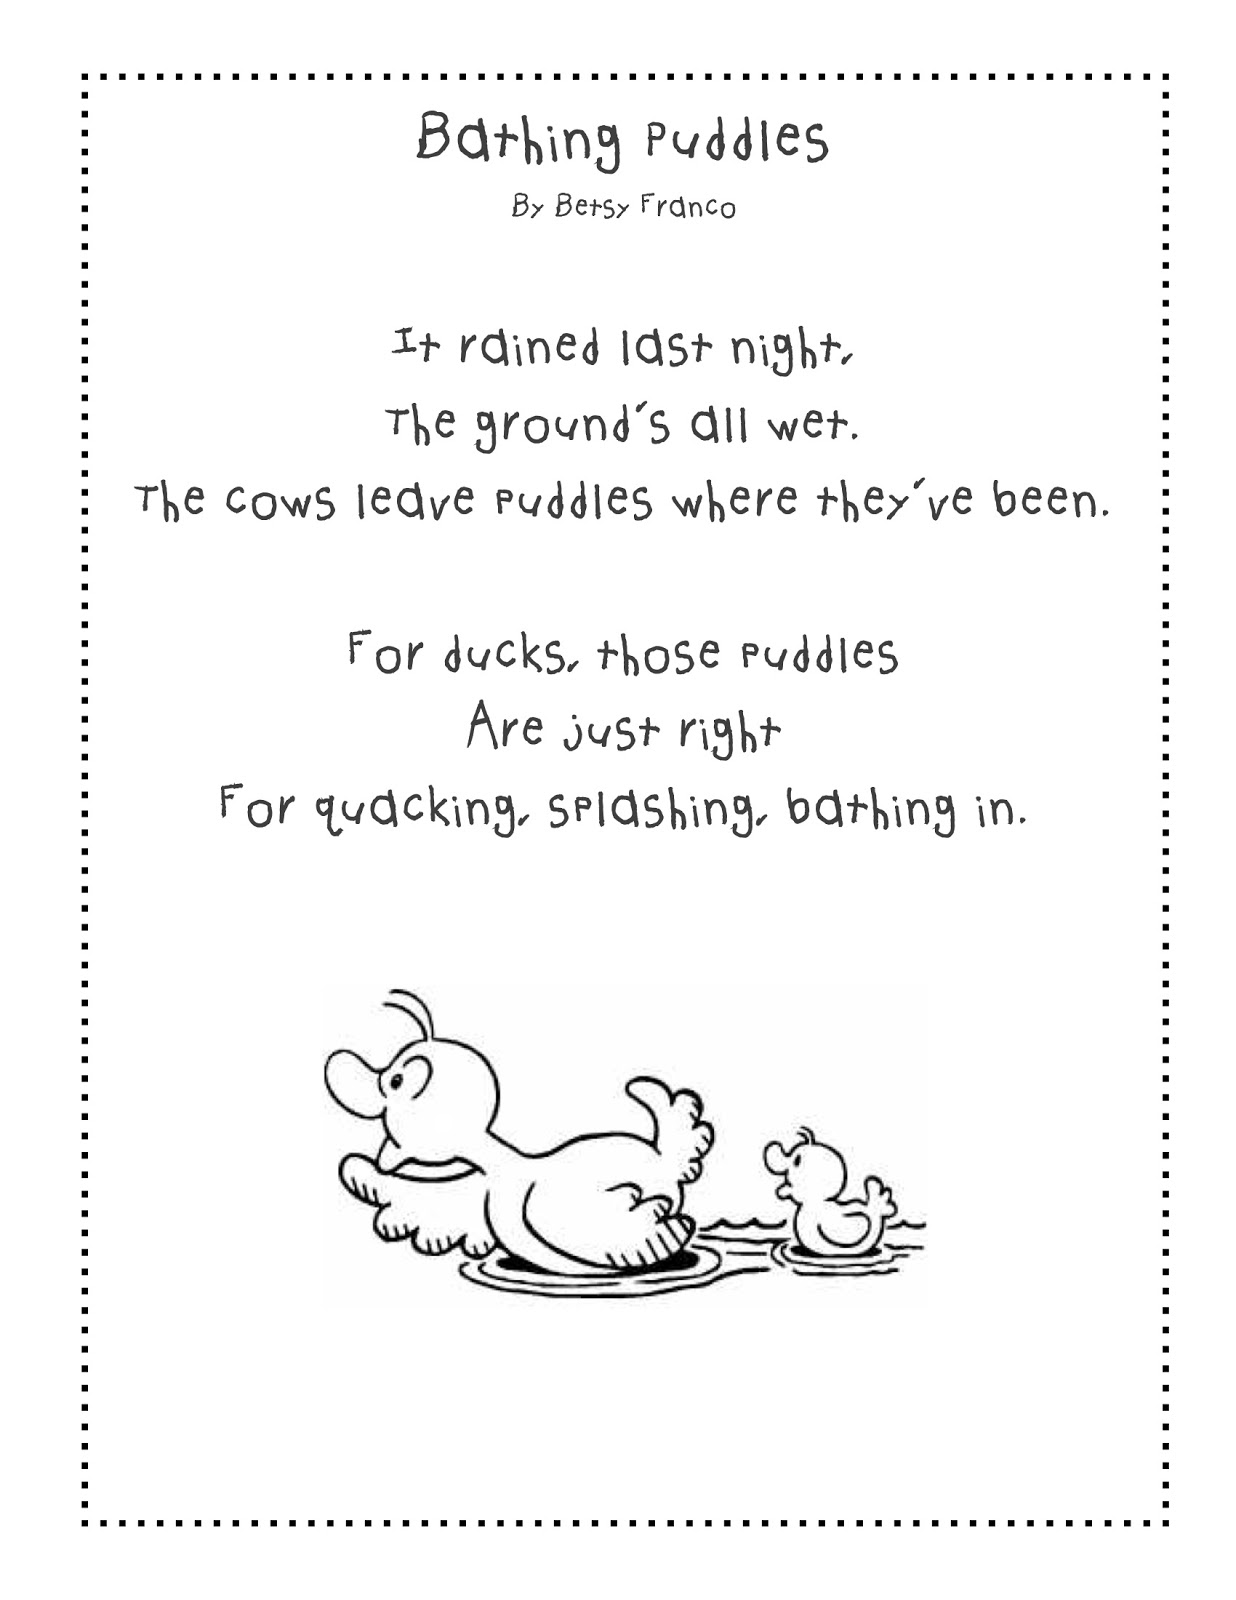 Bathing Puddles
By Betsy Franco
It rained last night,
The ground's all wet.
The cows leave puddles where they've been.
For ducks, those puddles
Are just right
For quacking, splashing, bathing in.